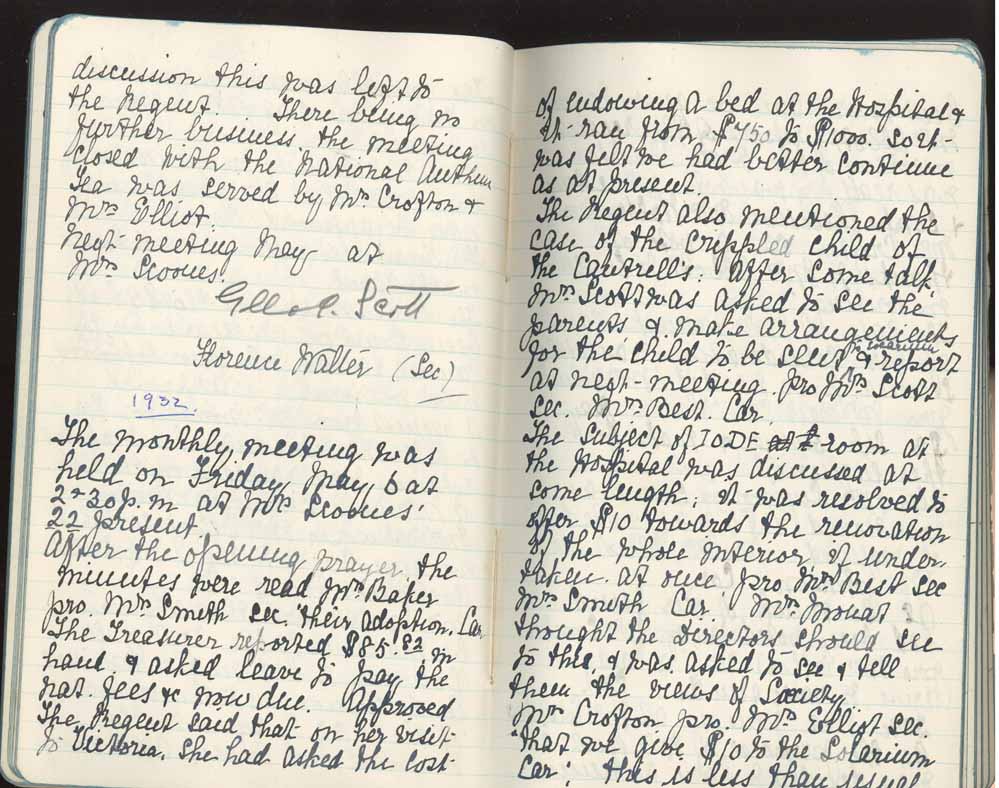 discussion this was left to
the Regent. There being no
further business the meeting
closed with the National Anthem
Tea was served by Mrs Crofton &
Mrs Elliot.
Next meeting May at
Mrs Scoones.
Scott
Florence Walter (Sec)
1932.
The monthly meeting was
held on Friday, May 6 at
2-30 p.m at Mrs Scoones'
22 present
After the opening prayer, the
minutes were read Mrs Baker
pro. Mrs Smith sec. their adoption. Car
The Treasurer reported $85.82 in
hand. & asked leave to pay the
nat. fees &c now due. Approved
The Regent said that on her visit
to Victoria, she had asked the cost
of endowing a bed at the Hospital &
it ran from $750 to $1000. so it
was felt we had better continue
as at present.
The Regent also mentioned the
case of the crippled child of
the Cantrell's. After some talk,
Mrs Scott was asked to see the
parents & make arrangements
for the child to be sent to Solarium & report
at next meeting. pro Mrs Scott
sec. Mrs Best. Car.
The subject of IODE room at
the Hospital was discussed at
some length; it was resolved to
offer $10 towards the renovation
of the whole interior, if under-
taken at once. pro Mrs Best sec
Mrs Smith Car. Mrs Mouat
thought the Directors should see
to this, & was asked to see & tell
them the views of Society.
Mrs Crofton pro. Mrs Elliot sec.
"that we give $10 to the Solarium
Car; this is less than usual